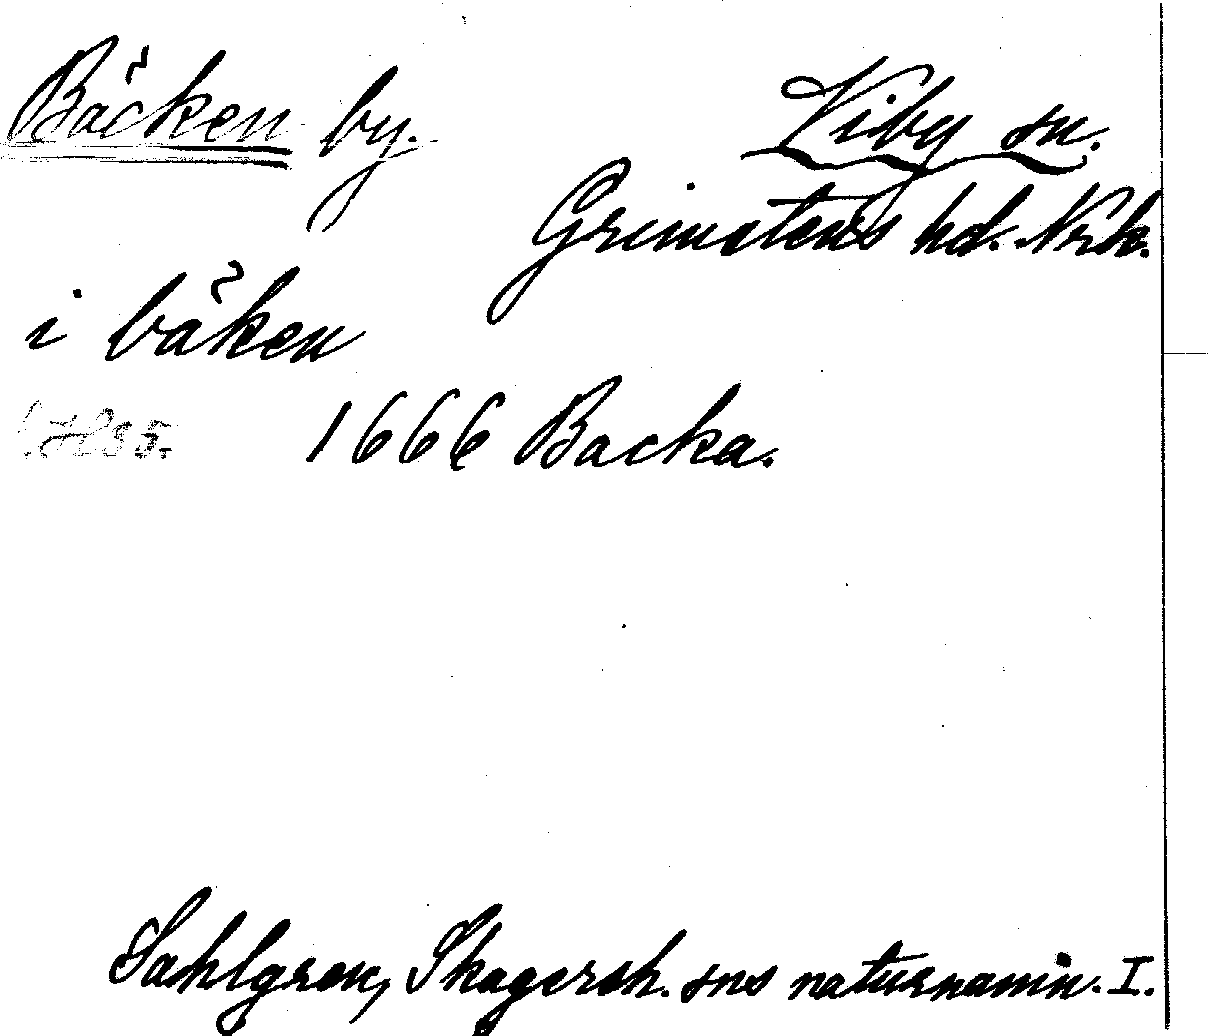 Bäcken by. Viby sn.
Grimstens hd. Nrk.
i bäken
1666 Backa.
Sahlgren, Skagersh. sns naturnamn. I.